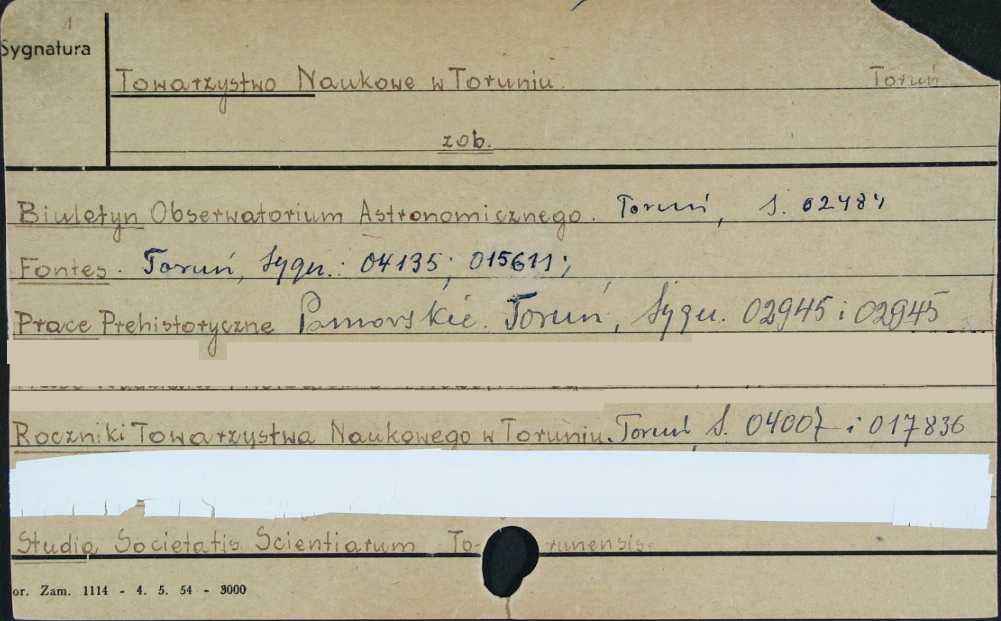 Sygnatura
Towarzystwo Naukowe w Toruniu. Toruń
zob.
Biuletyn Obserwatorium Astronomicznego. Toruń, S. 02484
Fontes. Toruń, Sygn.: 04135; 015611;
Prace Prehistoryczne Pomorskie. Toruń, Sygn. 02945 i 02945
Roczniki Towarzystwa Naukowego w Toruniu. Toruń S. 04007 i 017836
Studia Societatis Scientiarum To- runensis.
or. Zam. 1114 - 4. 5. 54 - 3000